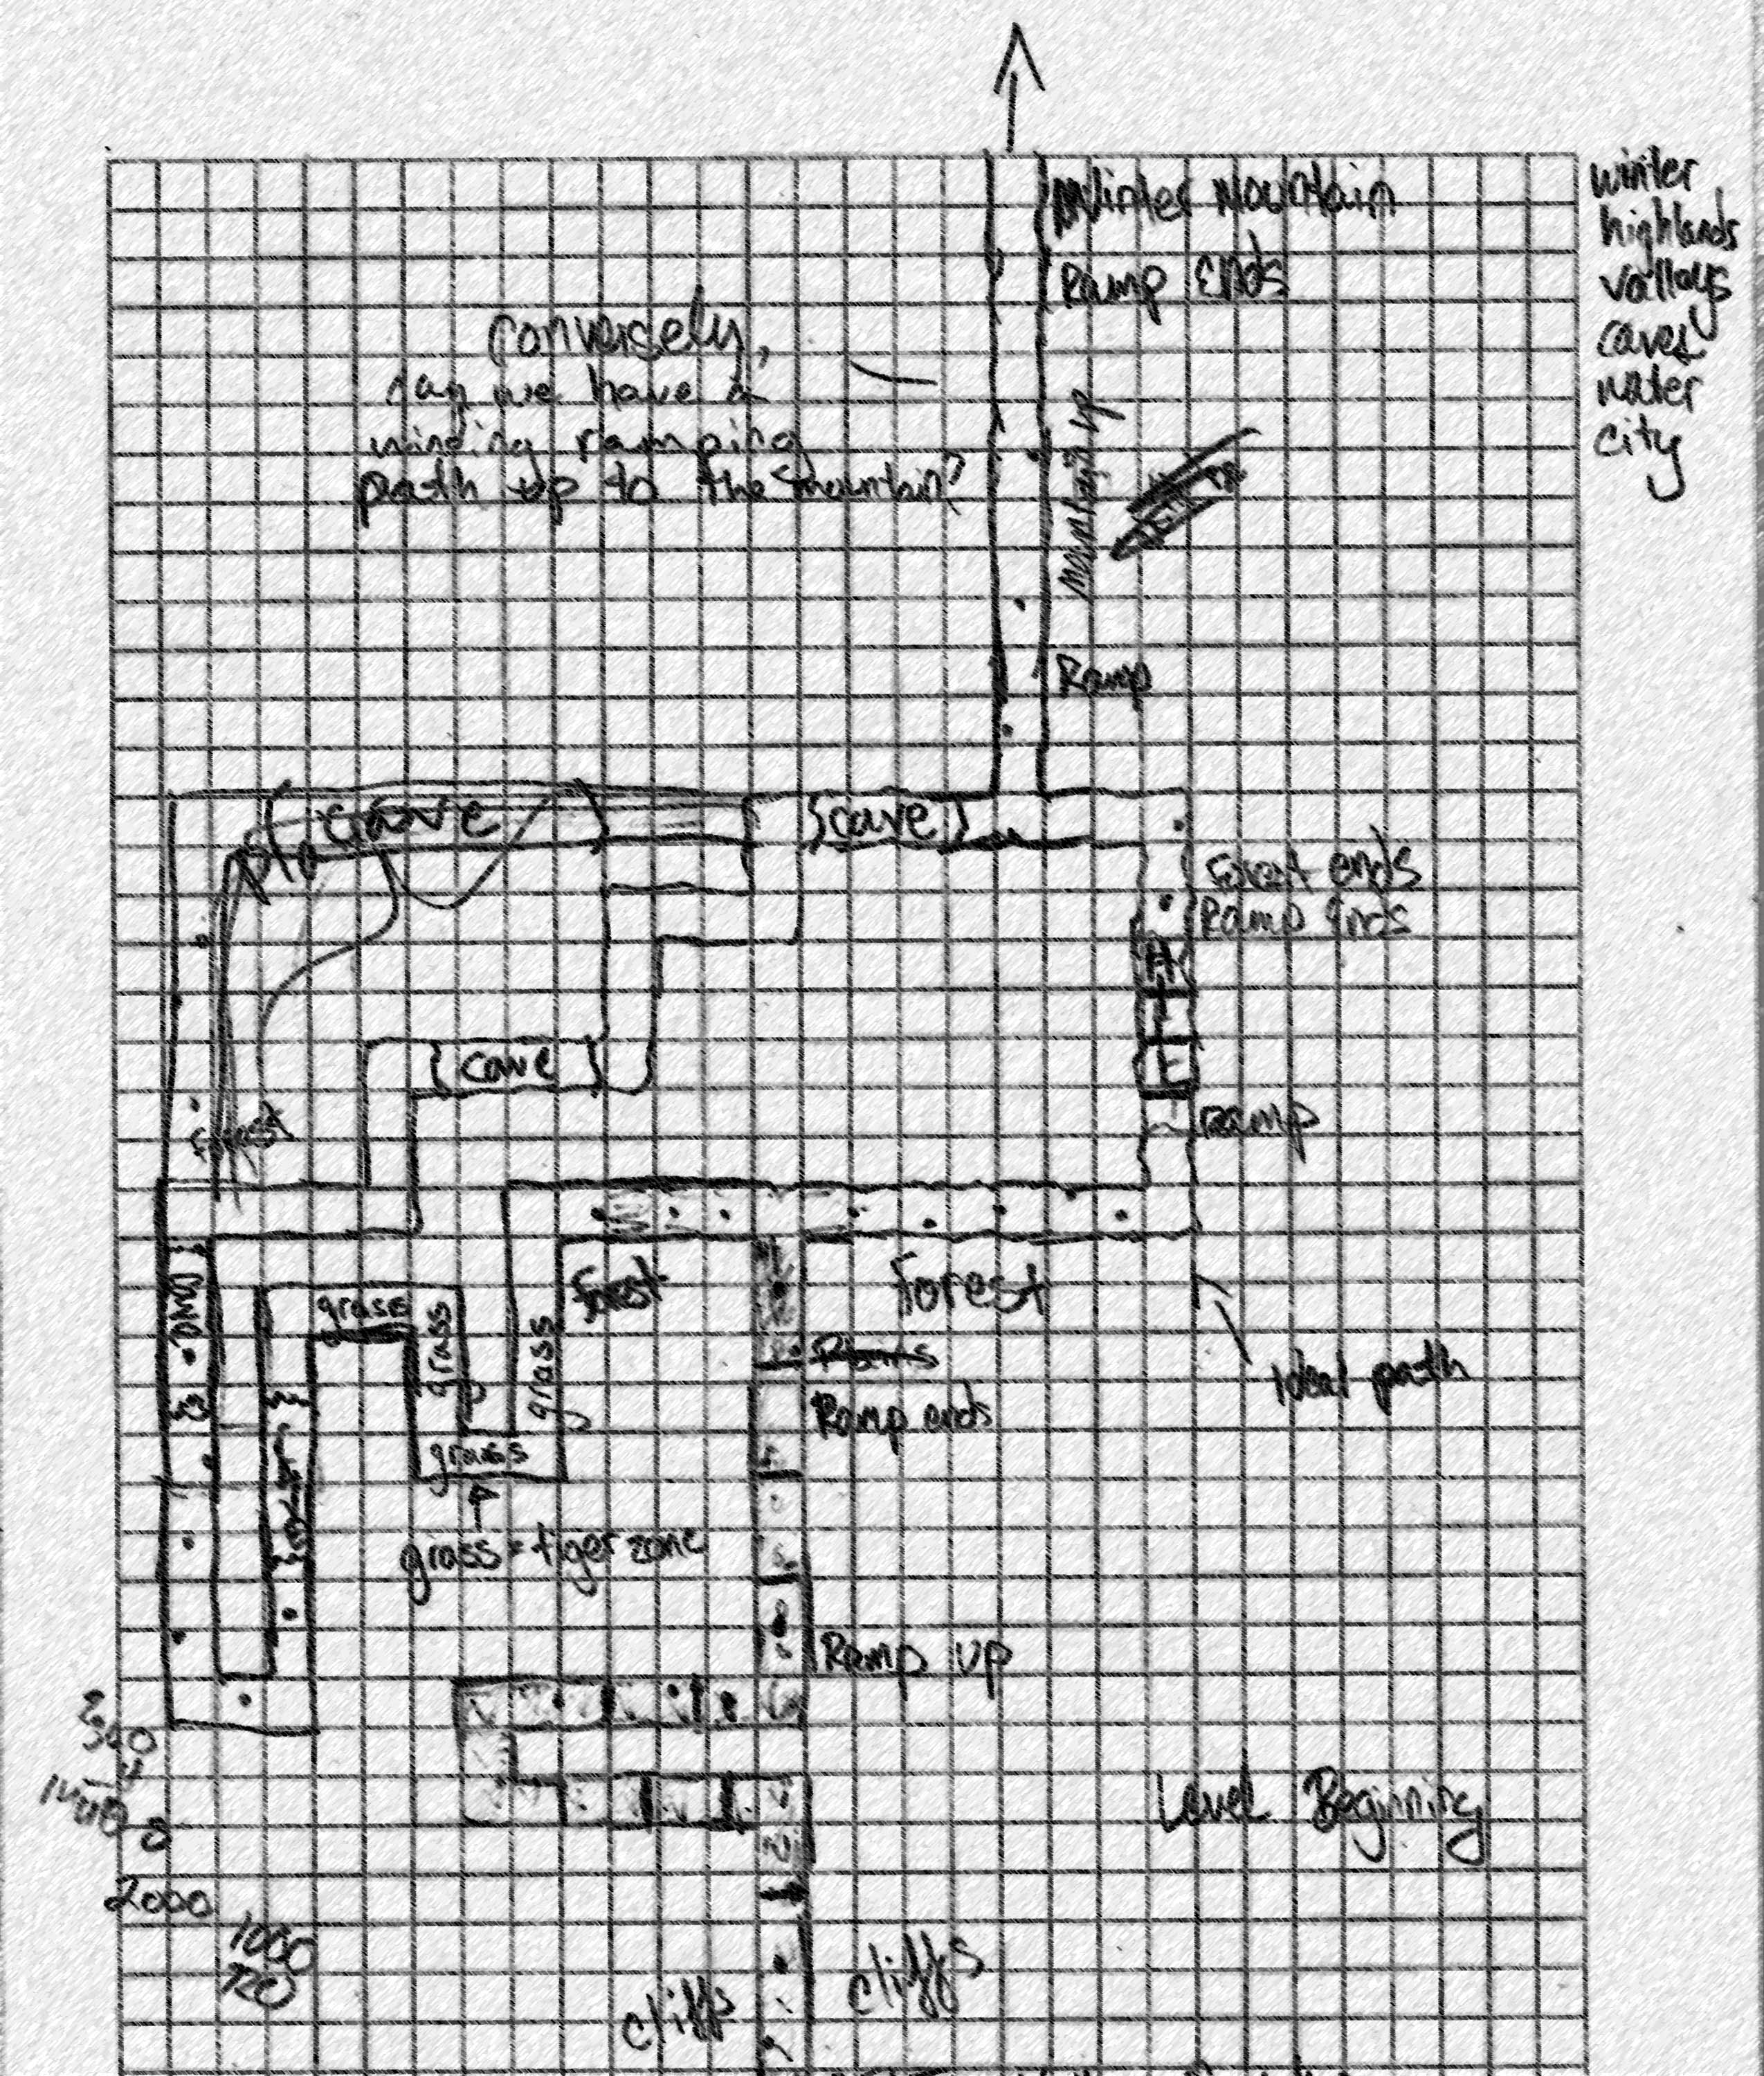 Winter Mountain
Ramp Ends
winter
highlands
valleys
caves
water
city
conversely,
can we have a
winding ramping
path up to the mountain?
mountain up
Ramp
cave
cave
Forest ends
Ramp Ends
cave
forest
Ramp
Forest
Forest
grass
grass
grass
Plains
Ramp ends
Ideal path
grass
grass = tiger zone
Ramp up
Level Beginning
2000
1000
720
cliffs
cliffs